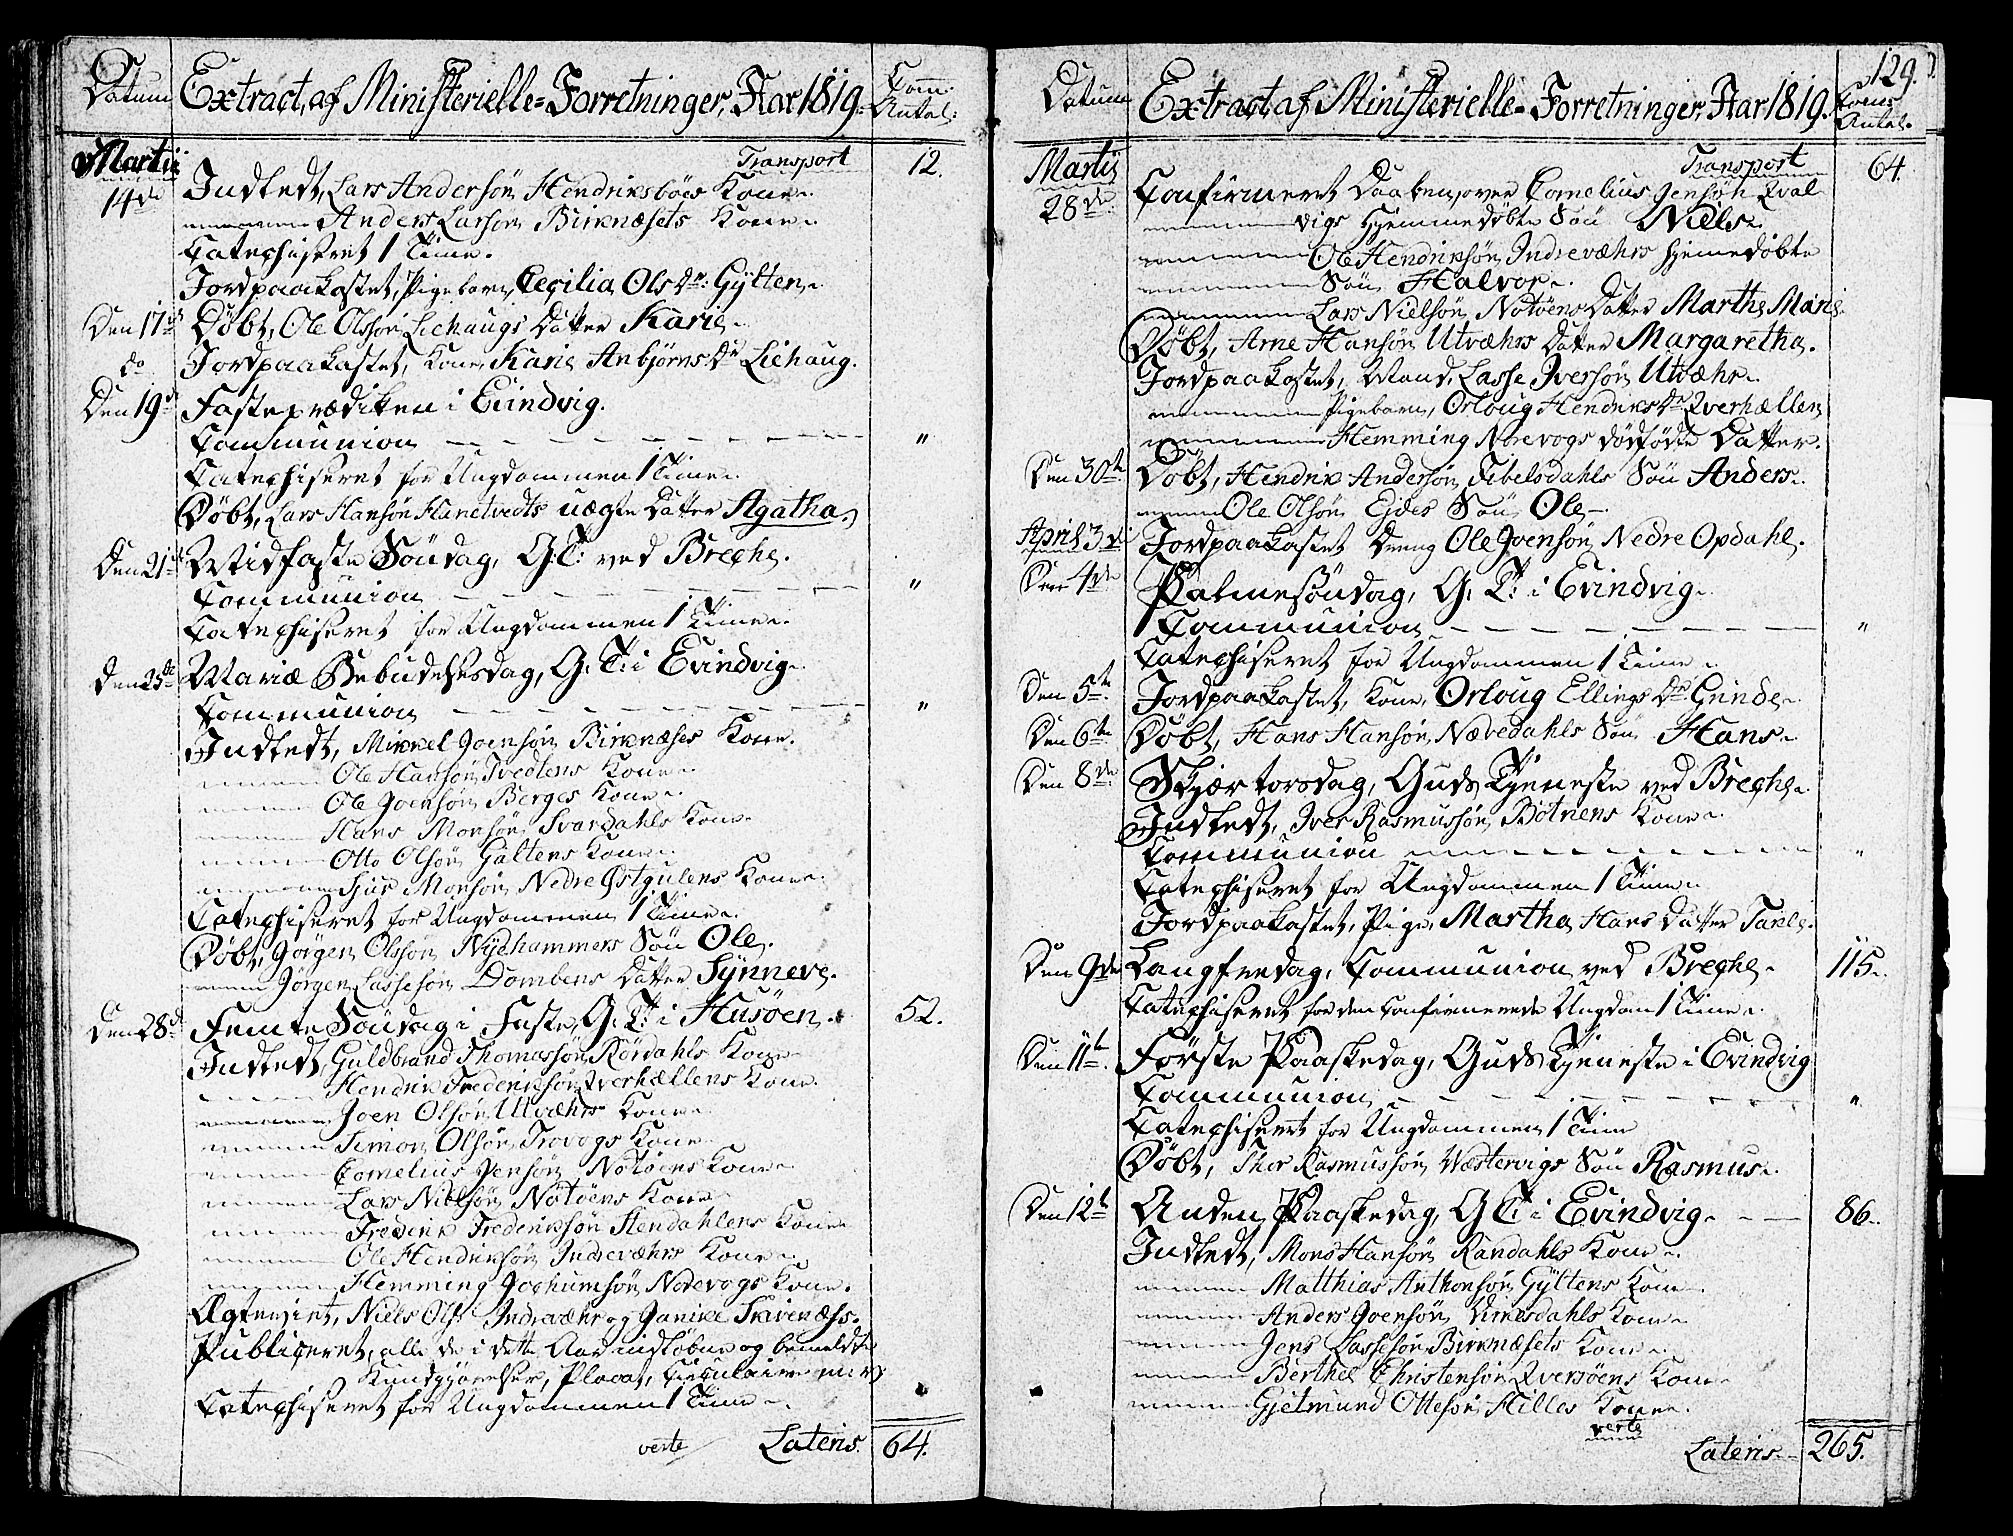 Datum Extract, af Ministerielle-Forretninger, Aar 1819. Com: Antal:
Martii Transport 12.
14de Indledt, Lars Andersøn Hendriksbøes Kone.
Anders Larsøn Birknæsets Kone.
Catechiseret 1 Time.
Jordpaakastet, Pigebarn, Cecilia Ols Dr: Gylten.
Den 17de Døbt, Ole Olssøn Liehaugs Datter Karie.
do Jordpaakastet, Kone, Karie Anbjørns Dr Liehaug.
Den 19de Fasteprædiken i Evindvig.
Communion "
Catechiseret for Ungdommen 1 Time.
Døbt, Lars Hansøn Hanetvedts uægte Datter Agatha.
Den 21de Midfaste Søndag, G. T: ved Brechе.
Communion "
Catechiseret for Ungdommen 1 Time.
Den 25de Mariæ Bebudelsesdag, G. T: i Evindvig.
Communion "
Indledt, Mikkel Joensøn Birknæses Kone.
Ole Hansøn Tvedtens Kone.
Ole Joensøn Berges Kone.
Hans Monsøn Svardahls Kone.
Otto Olsøn Galtens Kone.
Siur Monsøn Nedre Østgulens Kone.
Catechiseret for Ungdommen 1 Time.
Døbt, Jørgen Olssøn Nyehammers Søn Ole.
Jørgen Lassesøn Dombens Datter Synneve.
Den 28de Femte Søndag i Faste, G. T: i Husøen. 52.
Indledt, Guldbrand Thomassøn Rørdahls Kone.
Hendrik Frederiksøn Qverhællens Kone.
Joen Olsøn Utvæhrs Kone.
Simon Olsøn Trovogs Kone.
Cornelius Jensøn Notøens Kone.
Lars Nielsøn Notøens Kone.
Frederik Frederiksøn Stendahlens Kone.
Ole Hendriksøn Indrevæhrs Kone.
Hemming Jochumsøn Norevogs Kone.
Ægteviet, Niels Ols: Indrevæhr og Gunild Skivenæss.
Publiceret, alle de i dette Aar indløbne og bemeldte
Kundgjørelser, Placat, Circulaire
Catechiseret for Ungdommen 1 Time.
verte Lateris. 64.
129.
Datum Extract, af Ministerielle-Forretninger, Aar 1819. Com: Antal.
Martii Transport 64.
28de Confirmeret Daaben, over Cornelius Jensøn Qval-
vigs Hjemmedøbte Søn Niels.
Ole Hendriksøn Indrevæhrs hjemedøbte
Søn Halvor.
Lars Nielsøn Notøens Datter Marthe Marie.
Døbt, Arne Hansøn Utvæhrs Datter Margaretha.
Jordpaakastet, Mand, Lasse Iversøn Utvæhr.
Pigebarn, Orloug Hendriks Dr Qverhællen
Hemming Norevogs dødfødte Datter.
Den 30te Døbt, Hendrik Andersøn Fibelsdahls Søn Anders.
Ole Olsøn Eides Søn Ole.
April 3die Jordpaakastet Dreng Ole Joensøn Nedre Opdahl.
Den 4de Palmesøndag, G. T: i Evindvig.
Communion "
Catechiseret for Ungdommen 1 Time.
Den 5te Jordpaakastet, Kone, Orloug Ellings Dr Grinde.
Den 6te Døbt, Hans Hansøn Nævedahls Søn Hans.
Den 8de Skjærtorsdag, Guds Tjeneste ved Breche.
Indledt, Iver Rasmussøn Botnens Kone.
Communion "
Catechiseret for Ungdommen 1 Time.
Jordpaakastet, Pige, Martha Hans Datter Tarle.
Den 9de Langfredag, Communion ved Breche. 115.
Catechiseret for den confirmerede Ungdom 1 Time.
Den 11te Første Paaskedag, Guds Tjeneste i Evindvig
Communion "
Catechiseret for Ungdommen 1 Time
Døbt, Thor Rasmussøn Wæstervigs Søn Rasmus.
Den 12te Anden Paaskedag, G. T: i Evindvig. 86.
Indledt, Mons Hansøn Randahls Kone.
Matthias Anthonsøn Gyltens Kone.
Anders Joensøn Kone.
Jens Lassesøn Birknæsets Kone.
Berthel Christensøn Qversøens Kone.
Gjetmund Ottesøn Hilles Kone.
verte
Lateris 265.